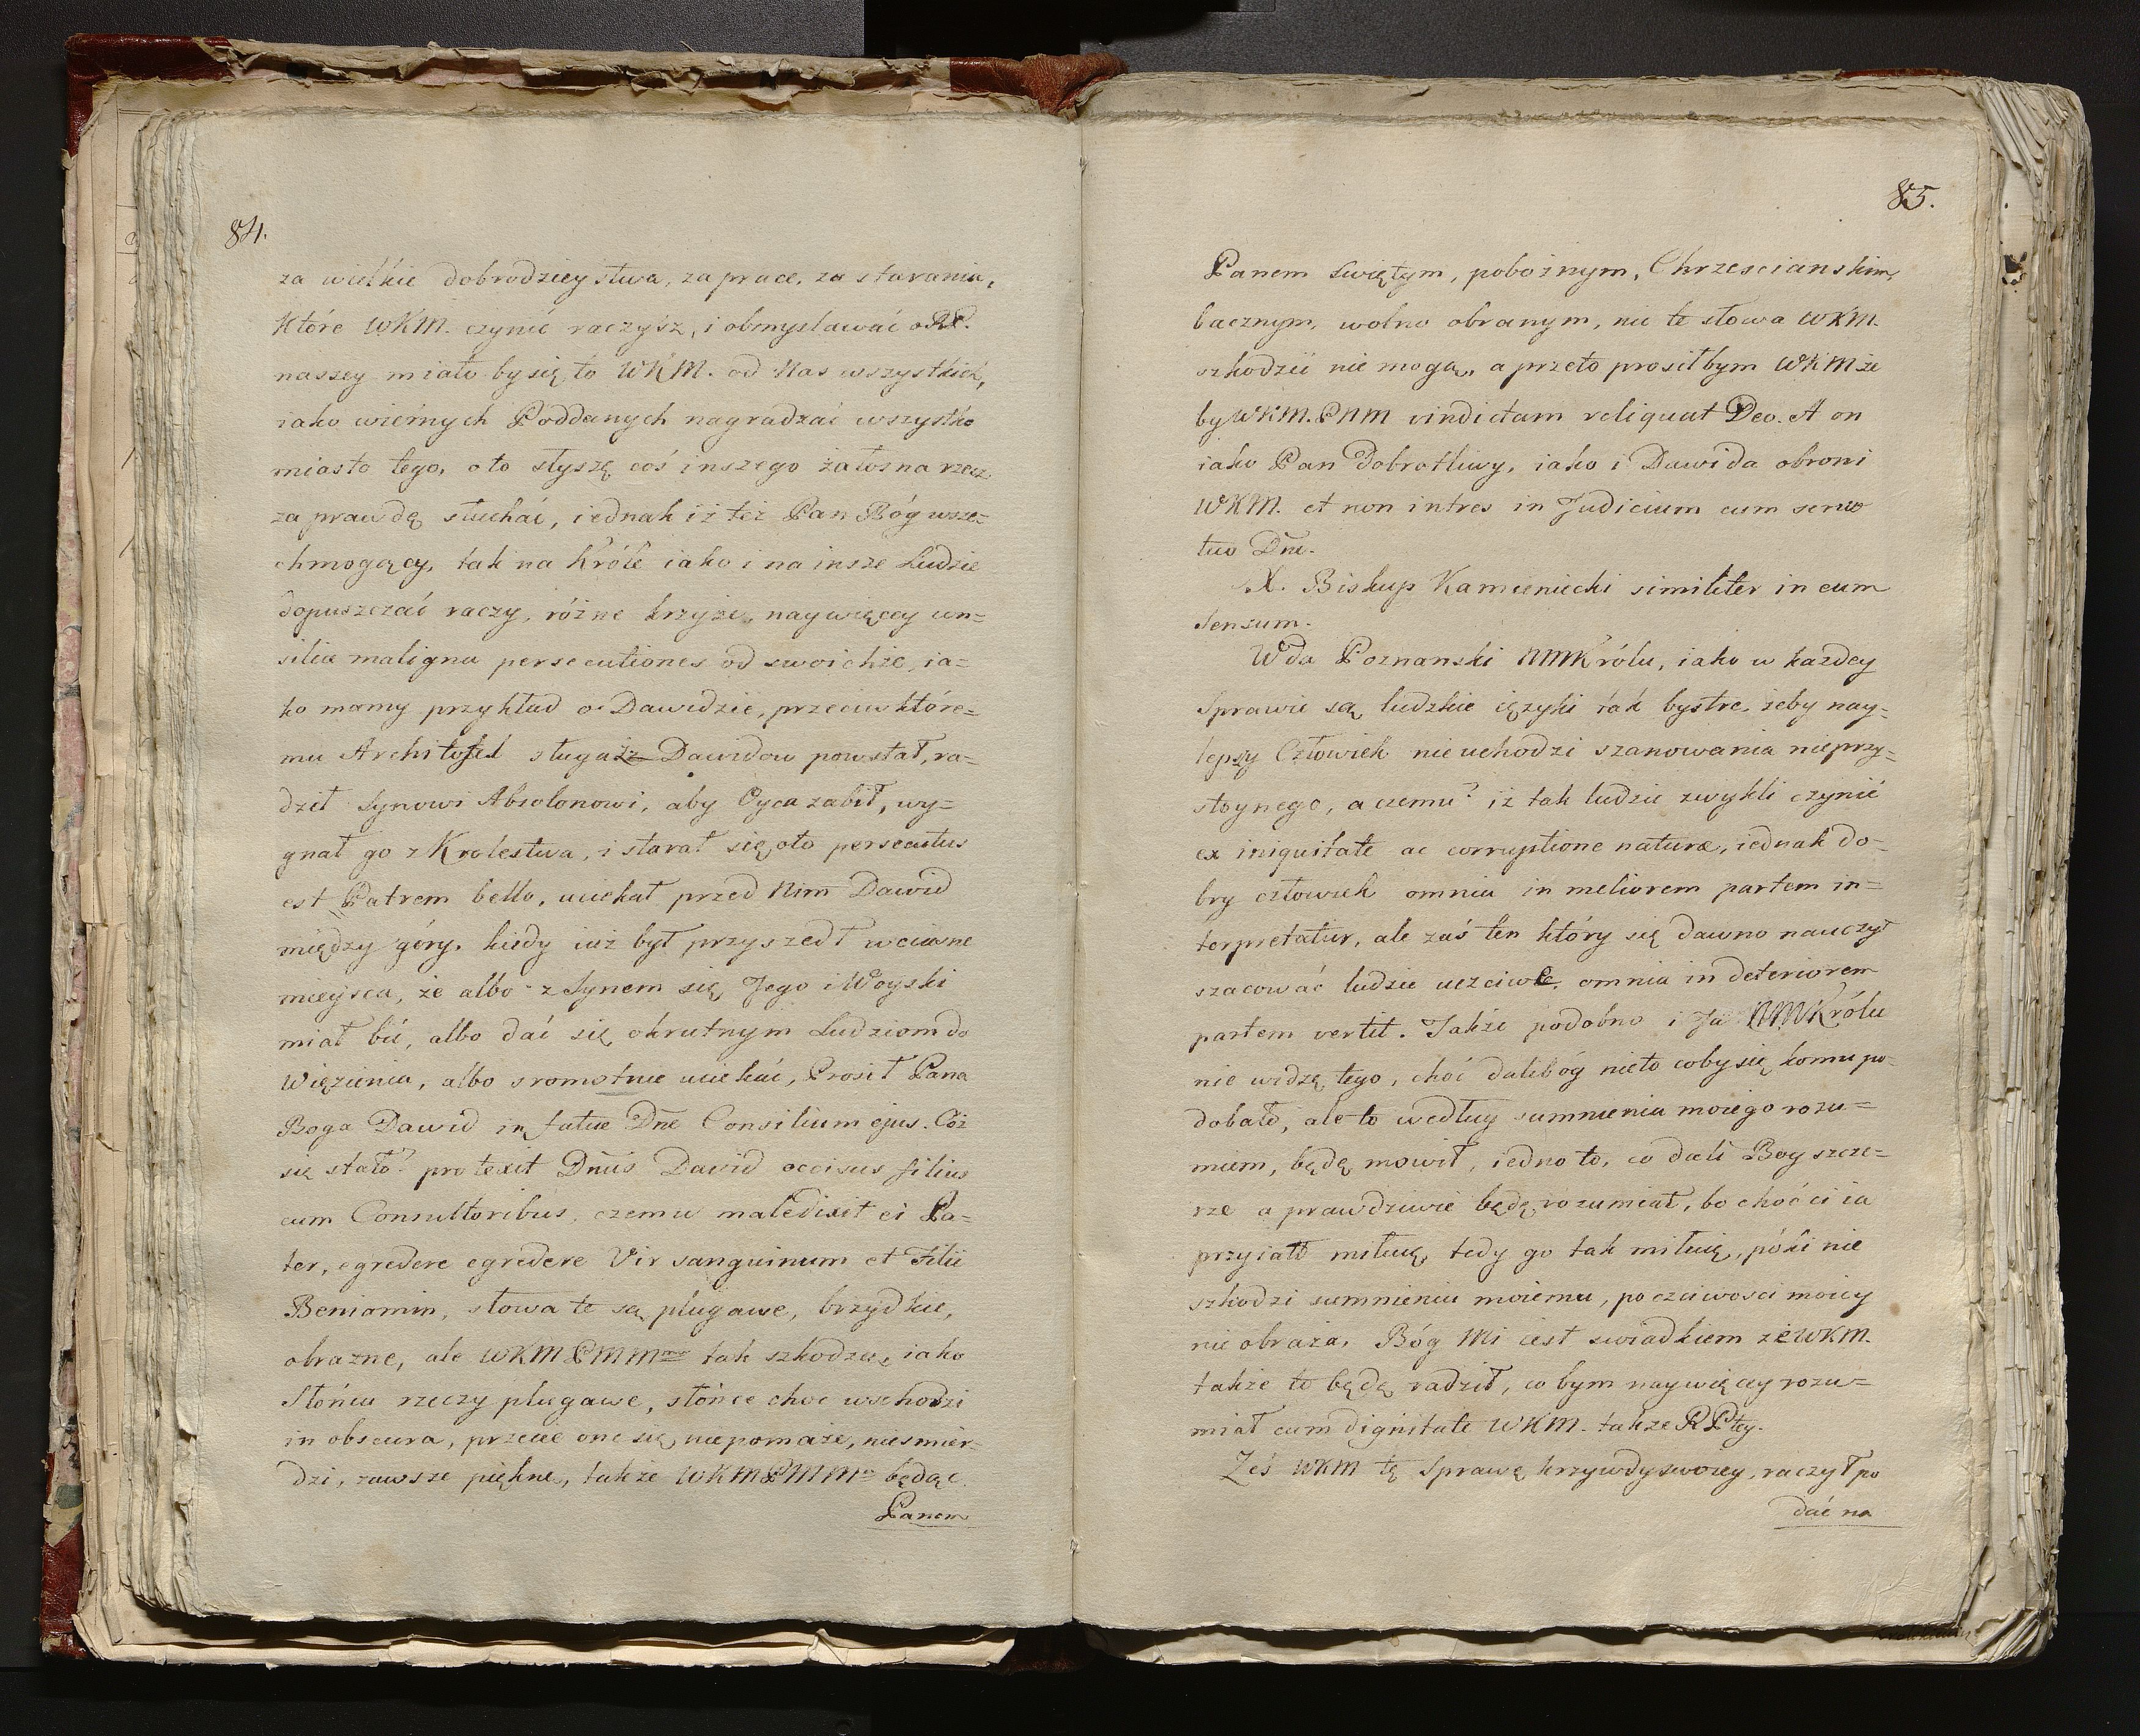 84.
za wielkie dobrodzieystwa, za prace, za starania,
które WKM. czynić raczysz, i obmyslawać o RP.
naszey miało by się to WKM. od Nas wszystkich,
iako wiernych Poddanych nagradzać wszystko
miasto tego, oto słyszę coś inszego żałosna rzecz
zaprawdę słuchać, iednak iż też Pan Bóg wsze=
chmogący, tak na Króle iako i na insze Ludzie
dopuszczać raczy, różne krzyże, naywięcey con=
silia maligna persecutiones od swoichże, ia=
ko mamy przykład o Dawidzie, przeciw które=
mu Architofel sługa Dawidow powstał, ra=
dził Synowi Absolonowi, aby Oyca zabił, wy=
gnał go z Krolestwa, i starał się oto persecutus
est Patrem bello, uciekał przed Nim Dawid
między góry, kiedy iuż był przyszedł w ciasne
mieysca, że albo z Synem się Jego i Woyski
miał bić, albo dać się okrutnym Ludziom do
Więzienia, albo sromotnie uciekać, Prosił Pana
Boga Dawid infatue Dne Consilium ejus. Cóż
się stało? protexit Dnus David occisus filius
cum Consultoribus, czemu maledixit ei Pa=
ter, egredere egredere Vir sanguinum et Filii
Beniamin, słowa te są plugawe, brzydkie,
obrazne, ale WKM PMM tak szkodzą, iako
Słońcu rzeczy plugawe, słońce choc wschodzi
in obscura, przecie one się niepomaże, niesmier=
dzi, zawsze piękne, także WKM PMM będąc
Panem
85.
Panem Swiętym, pobożnym, Chrzescianskim,
bacznym, wolno obranym, nic te słowa WKM.
szkodzić nie mogą, a przeto prosiłbym WKM że
by WKM. PNM vindictam reliquat Deo. A on
iako Pan Dobrotliwy, iako i Dawida obroni
WKM. et non intres in Judicium cum servo
tuo Dne.
X. Biskup Kamieniecki similiter in eum
Sensum.
Wda Poznanski NMKrólu, iako w każdey
Sprawie są ludzkie ięzyki tak bystre, żeby nay=
lepszy Człowiek nieuchodzi szanowania nieprzy=
stoynego, a czemu? iż tak ludzie zwykli czynić
ex iniquitate ac corruptione naturæ, iednak do=
bry człowiek omnia in meliorem partem in=
terpretatur, ale zaś ten który się dawno nauczył
szacować ludzie uczciwe, omnia in deteriorem
partem vertit. Także podobno i Ja NMKrólu
nie widzę tego, choć dalibóg nieto coby się komu po=
dobało, ale to według sumnienia moiego rozu=
miem, będę mowił, iedno to, co dali Bog szcze=
rze a prawdziwie będę rozumiał, bo choć ci ia
przyiaţł miłuię, tedy go tak miłuię, póki nie
szkodzi sumnieniu moiemu, poczciwosci moiey
nie obraża, Bóg Mi iest swiadkiem że WKM.
także to będę radził, co bym naywięcey rozu=
miał cum dignitate WKM. także RPtey.
Żeś WKM tę Sprawę krzywdy swoiey, raczył po
dać na